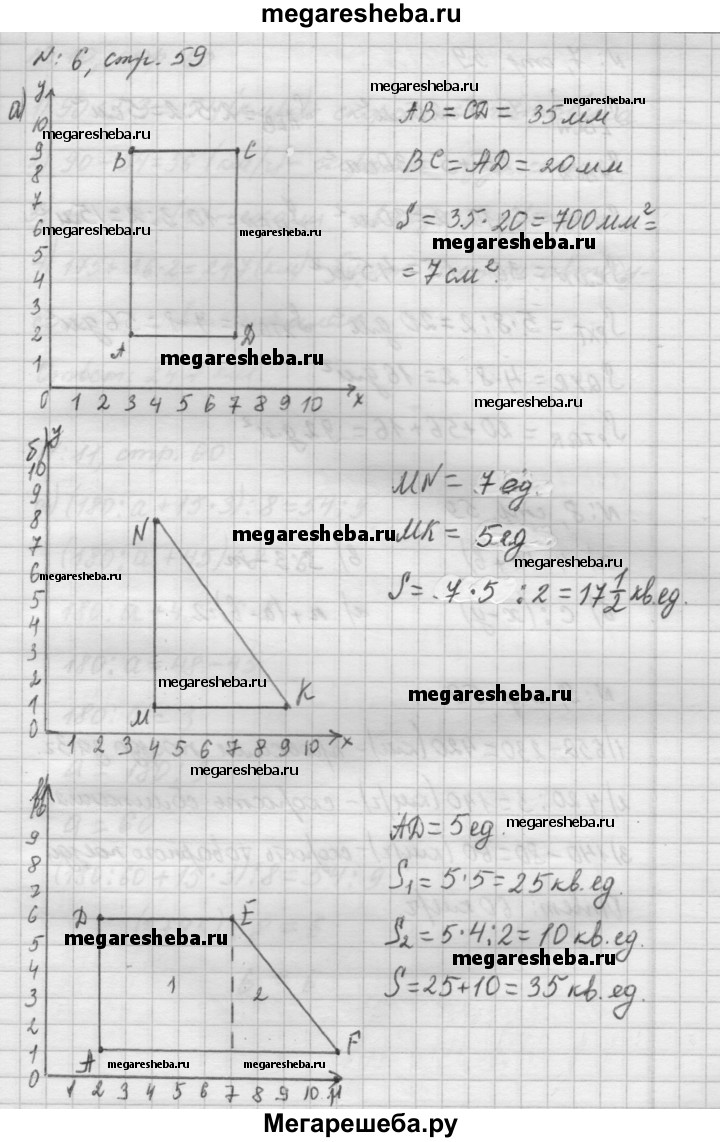 megaresheba.ru
N: 6, стр. 59
а)
y
10
9
8
7
6
5
4
3
2
1
0 1 2 3 4 5 6 7 8 9 10 x
B C
A D
megaresheba.ru
megaresheba.ru
megaresheba.ru
megaresheba.ru
megaresheba.ru
megaresheba.ru
AB = CD = 35 мм
megaresheba.ru
BC = AD = 20 мм
S = 35·20 = 700 мм² =
megaresheba.ru
= 7 см².
megaresheba.ru
б)
y
10
9
8
7
6
5
4
3
2
1
0 1 2 3 4 5 6 7 8 9 10 x
N
M K
megaresheba.ru
megaresheba.ru
megaresheba.ru
megaresheba.ru
MN = 7 ед.
MK = 5 ед
megaresheba.ru
S = 7·5 : 2 = 17 1/2 кв.ед.
megaresheba.ru
10
9
8
7
6
5
4
3
2
1
0 1 2 3 4 5 6 7 8 9 10 11
D E
1 2
A F
megaresheba.ru
megaresheba.ru
megaresheba.ru
AD = 5 ед.
megaresheba.ru
S₁ = 5·5 = 25 кв.ед.
S₂ = 5·4 : 2 = 10 кв.ед.
megaresheba.ru
S = 25 + 10 = 35 кв.ед.
Мегарешеба.ру